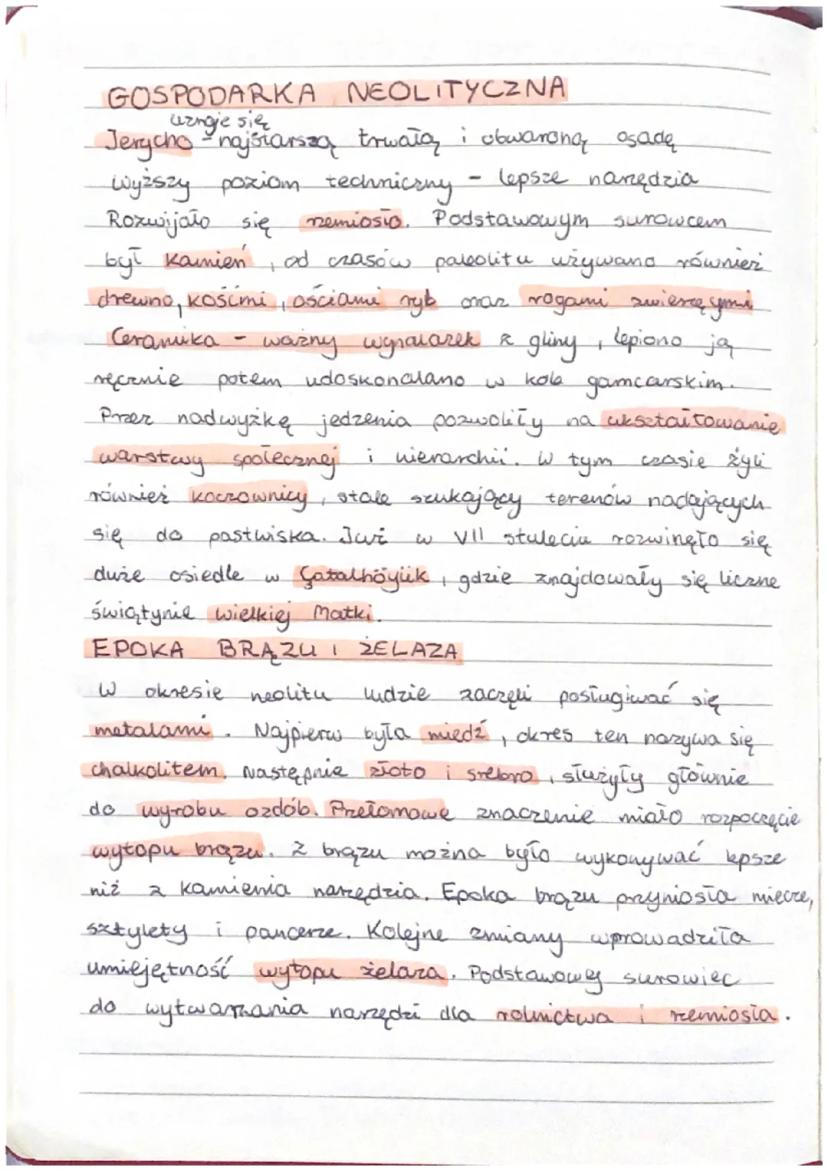 GOSPODARKA NEOLITYCZNA
uznaje się
Jerycho - najstarszą trwałą i obwaroną osadę
wyższy poziom techniczny - lepsze narzędzia
Rozwijało się rzemiosło. Podstawowym surowcem
był kamień, od czasów paleolitu używano również
drewno, kośćmi, ościami ryb oraz rogami zwierzęcymi
Ceramika - ważny wynalazek z gliny, lepiono ją
ręcznie potem udoskonalano w kole garncarskim.
Przez nadwyżkę jedzenia pozwoliły na ukształtowanie
warstwy społecznej i hierarchii. W tym czasie żyli
również koczownicy, stale szukający terenów nadających
się do pastwiska. Już w VII stuleciu rozwinęło się
duże osiedle w Çatalhöyük, gdzie znajdowały się liczne
świątynie Wielkiej Matki.
EPOKA BRĄZU I ŻELAZA
W okresie neolitu ludzie zaczęli posługiwać się
metalami. Najpierw była miedź, okres ten nazywa się
chalkolitem. Następnie złoto i srebro, służyły głównie
do wyrobu ozdób. Przełomowe znaczenie miało rozpoczęcie
wytopu brązu. Z brązu można było wykonywać lepsze
niż z kamienia narzędzia. Epoka brązu przyniosła miecze,
sztylety i pancerze. Kolejne zmiany wprowadziła
umiejętność wytopu żelaza. Podstawowy surowiec
do wytwarzania narzędzi dla rolnictwa i rzemiosła.